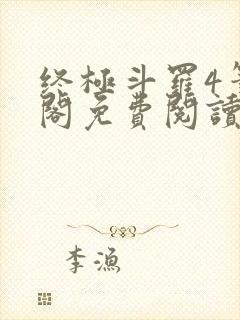 终極斗羅4筆
閣免費閱讀
李漁